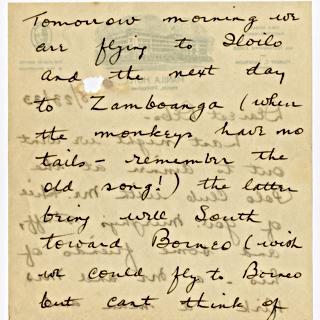 Tomorrow morning we
are flying to Iloilo
and the next day
to Zamboanga (where
the monkeys have no
tails - remember the
old song!) the latter
being well South
toward Borneo (wish
we could fly to Borneo
but cant think of